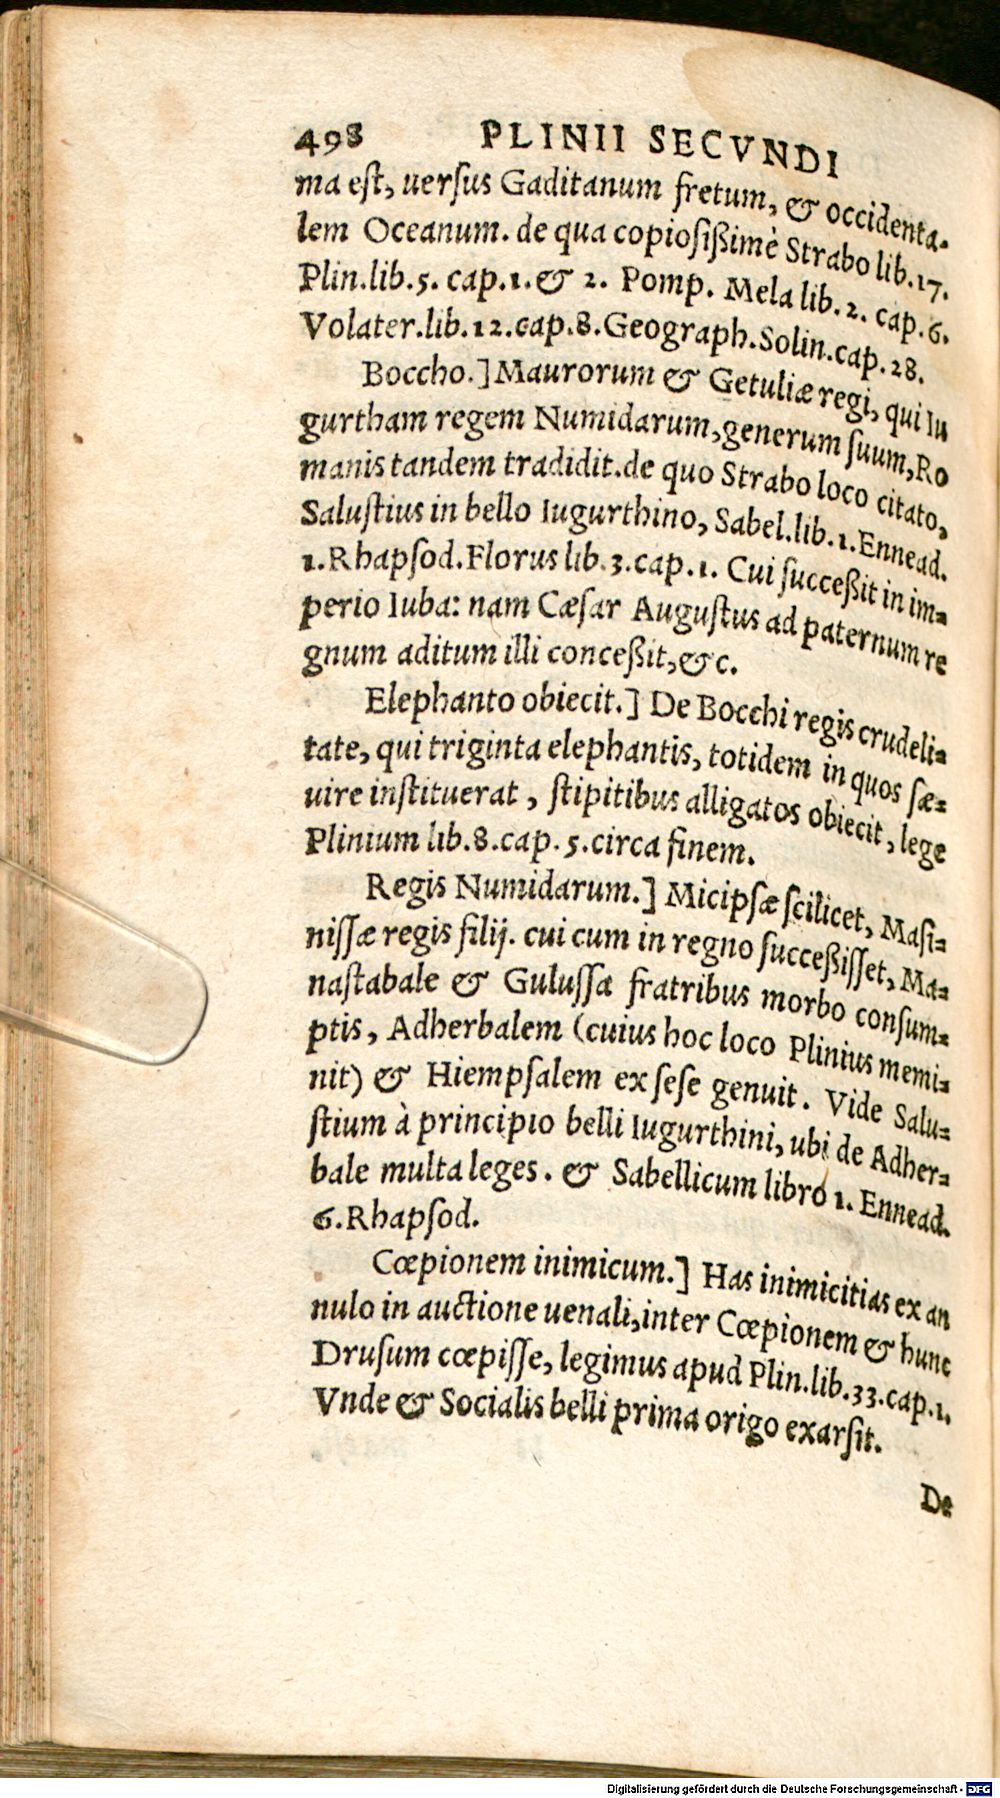 498 PLINII SECVNDI
ma est, uersus Gaditanum fretum, & occidenta-
lem Oceanum. de qua copiosißimè Strabo lib.17.
Plin.lib.5. cap.1.& 2. Pomp. Mela lib.2. cap.6.
Volater.lib.12.cap.8.Geograph.Solin.cap.28.
Boccho.] Maurorum & Getuliæ regi, qui Iu
gurtham regem Numidarum,generum suum,Ro
manis tandem tradidit.de quo Strabo loco citato,
Salustius in bello Iugurthino, Sabel.lib.1.Ennead.
1.Rhapsod.Florus lib.3.cap.1. Cui succeßit in im-
perio Iuba: nam Cæsar Augustus ad paternum re
gnum aditum illi conceßit,&c.
Elephanto obiecit.] De Bocchi regis crudeli-
tate, qui triginta elephantis, totidem in quos sæ-
uire instituerat, stipitibus alligatos obiecit, lege
Plinium lib.8.cap.5.circa finem.
Regis Numidarum.] Micipsæ scilicet, Masi-
nissæ regis filij. cui cum in regno succeßisset, Ma-
nastabale & Gulussa fratribus morbo consum-
ptis, Adherbalem (cuius hoc loco Plinius memi-
nit) & Hiempsalem ex sese genuit. Vide Salu-
stium à principio belli Iugurthini, ubi de Adher-
bale multa leges. & Sabellicum libro 1. Ennead.
6.Rhapsod.
Cœpionem inimicum.] Has inimicitias ex an
nulo in auctione uenali,inter Cœpionem & hunc
Drusum cœpisse, legimus apud Plin.lib.33.cap.1.
Vnde & Socialis belli prima origo exarsit.
De
Digitalisierung gefördert durch die Deutsche Forschungsgemeinschaft - DFG